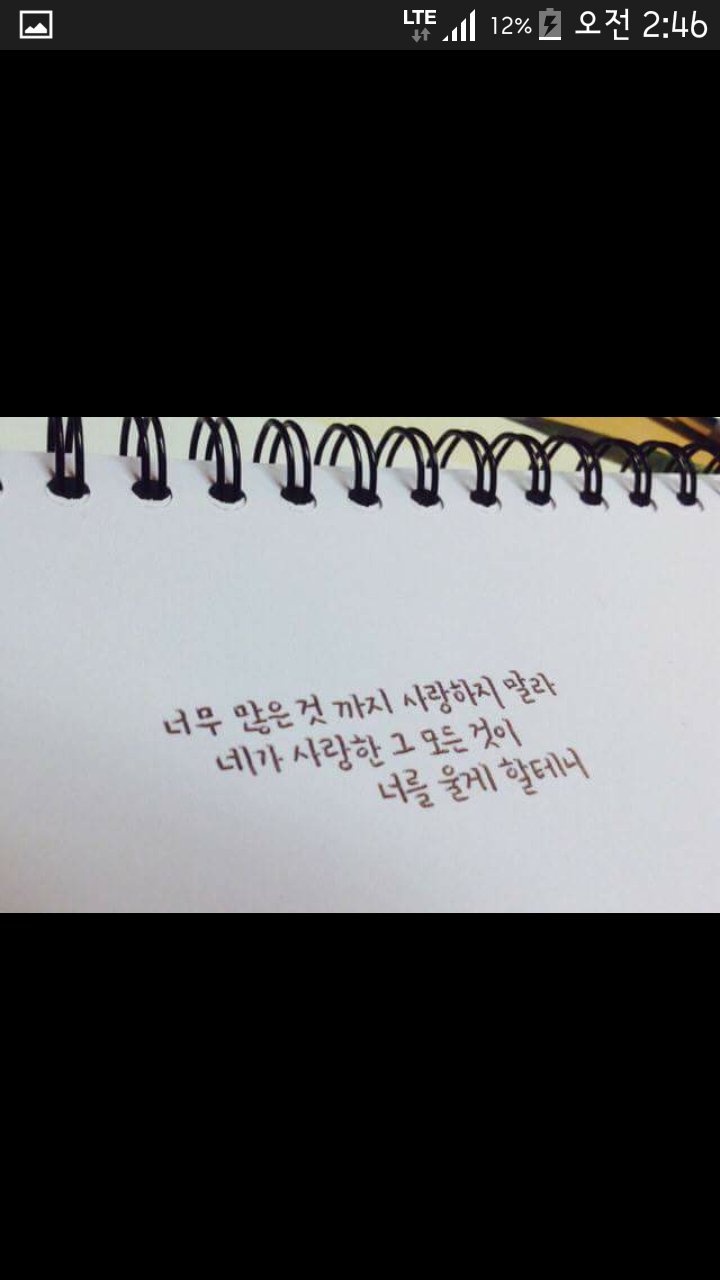 LTE 12% 오전 2:46
너무 많은것 까지 사랑하지 말라
네가 사랑한 그 모든 것이
너를 울게 할테니